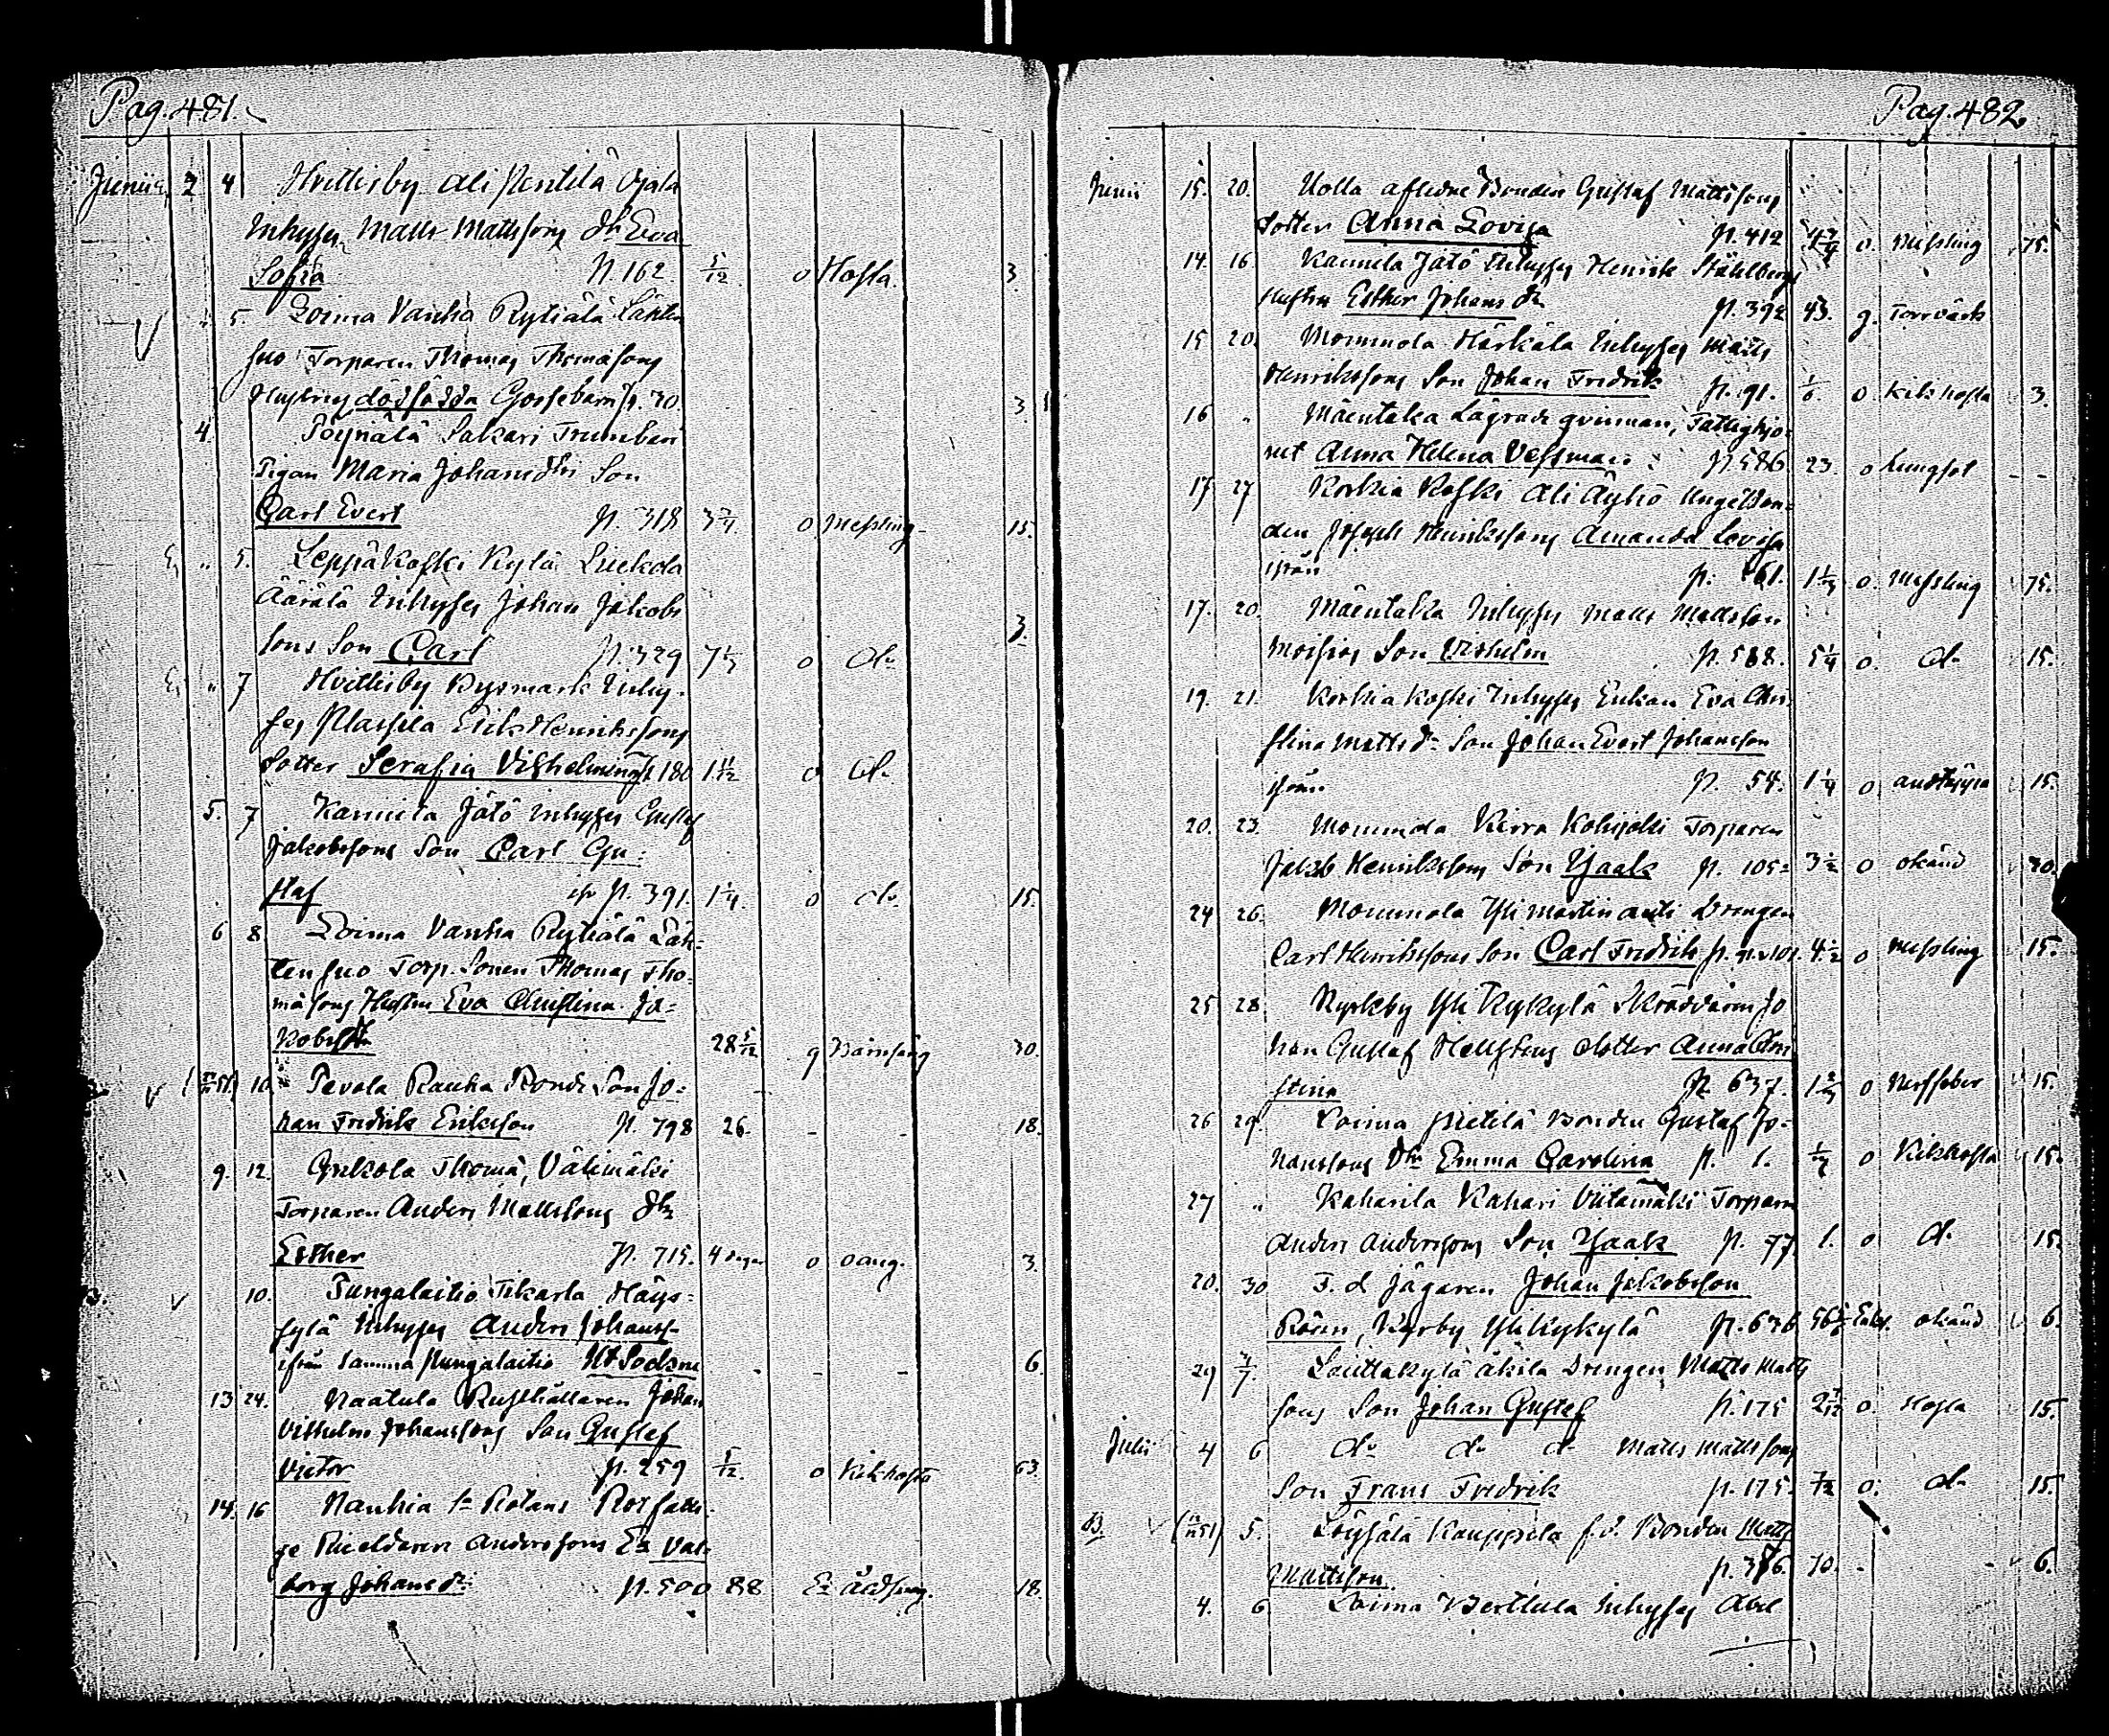 Pag. 481.
Junius 2 4 Hvittisby Ali Pentilä Ojala
Inhyses Matts Mattssons dr Eva
Sofia p. 162 5/12 o Hosta. 3.
" 5. Loima Vanha Rytiälä Lähten
suo Torparen Thomas Thomasons
Hustrus dödfödda Gossebarn p. 30. 3
4. Pöyriälä Sakari
Pigan Maria Johansdrs Son
Carl Evert p. 318 3 3/4. o Messling 15.
" 5. Leppäkoski Kylä Liekola
Äärälä Inhyses Johan Jakobs
sons Son Carl p. 329 o do 3.
" 7 Hvittisby Bysmark Inhy-
ses Erik Henrikssons
Dotter Serafia Vilhelmina p. 180 1 11/12 o do
5. 7 Kannila Jätö Inhyses Gustaf
Jakobssons Son Carl Gu-
staf p. 391. 1 1/4. o do. 15.
6 8. Loima Vanha Rytiälä Läh-
tensuo Torp. Sonen Thomas Tho-
masons Hustru Eva Christina Ja-
kobsdr 28 5/12 g Barnsäng 30.
10. Pevola Rauha Bonde Son Jo-
han Fredrik Eriksson p. 798 26. - - 18.
9. 12. Thoma, Välimäki
Torparen Anders Mattssons dr
Esther p. 715. 4 dagar o oang. 3.
B. v 10. Pungalaitio Tikarla
Inhyses Anders Johanss-
ifrån samma Pungalaitio Ut Socknen - - - 6.
13 24. Naatula Rusthållaren Johan
Vilhelm Johanssons Son Gustaf
Victor p. 259 5/12. o Kikhosta 63.
14. 16 Nanhia Rotans
Anderssons Ea Val-
borg Johansdr p. 500 88 Ea Ålderdom. 18.
Pag. 482
Junii 15. 20. Nolla aflidne Bonden Gustaf Mattssons
dotter Anna Lovisa p. 412 o. Messling 75.
14. 16. Kannila Jätö Inhyses Henrik Ståhlbergs
Hustru Esther Johansdr p. 392 43. g. Torrvärk
15 20. Mommola Härkälä Inhyses Matts
Henrikssons Son Johan Fredrik p. 91. 1/6. o Kikhosta 3.
16 " Mäentaka Lägrade qvinnan, Fattighjo-
net Anna Helena Vessman p. 586 23. o Lungsot - -
17 27 Korkia Koski Ali Äyhö Ungebon-
den Joseph Henrikssons Amanda Lovisa
ifrån p. 61. o. Messling 75.
17. 20 Mäentaka Inhyses Matts Mattsson
Son Vilhelm p. 588. 5 1/4 o. do 15.
19. 21. Korkia Koski Inhyses Enkan Eva Chri-
stina Mattsdr Son Johan Evert Johansson
ifrån p. 54. 1 1/4 o andtäppa 15.
20. 23. Mommola Kirra Torparen
Jakob Henrikssons Son Isaak p. 105. 3 1/2 o okänd 30.
24 26. Mommola Yli martin antti Drengen
Carl Henrikssons Son Carl Fredrik p. 101. 4 1/2 o Messling 15.
25 28 Kyrkby Yli Kykylä Skräddaren Jo
han Gustaf Hellstens dotter Anna Chri
stina p. 637. o Nerffeber 15.
26 29. Loima Pietilä Bonden Gustaf Jo-
hanssons dr Emma Carolina p. 1. o Kikhosta 15.
27 " Kaharila Kahari Viitamäki Torparen
Anders Anderssons Son Isaak p. 77 1. o do 15.
20. 30 F. d Jägaren Johan Jakobsson
Kyrkby Yli Kykylä p. 636 56 Enkl. okänd 6.
29 2/7. Lauttakylä äkilä Drengen Matts Matts
sons Son Johan Gustaf p. 175 o. Hosta 15.
Julii 4 6 do do do Matts Mattssons
Son Frans Fredrik p. 175. 7/12 o. do 15.
B. v 5. Löysälä Kauppila f.d. Bonden Matts
Mattsson. p. 376. 70. - - 6.
4. 6 Loima Berttula Inhyses Abel